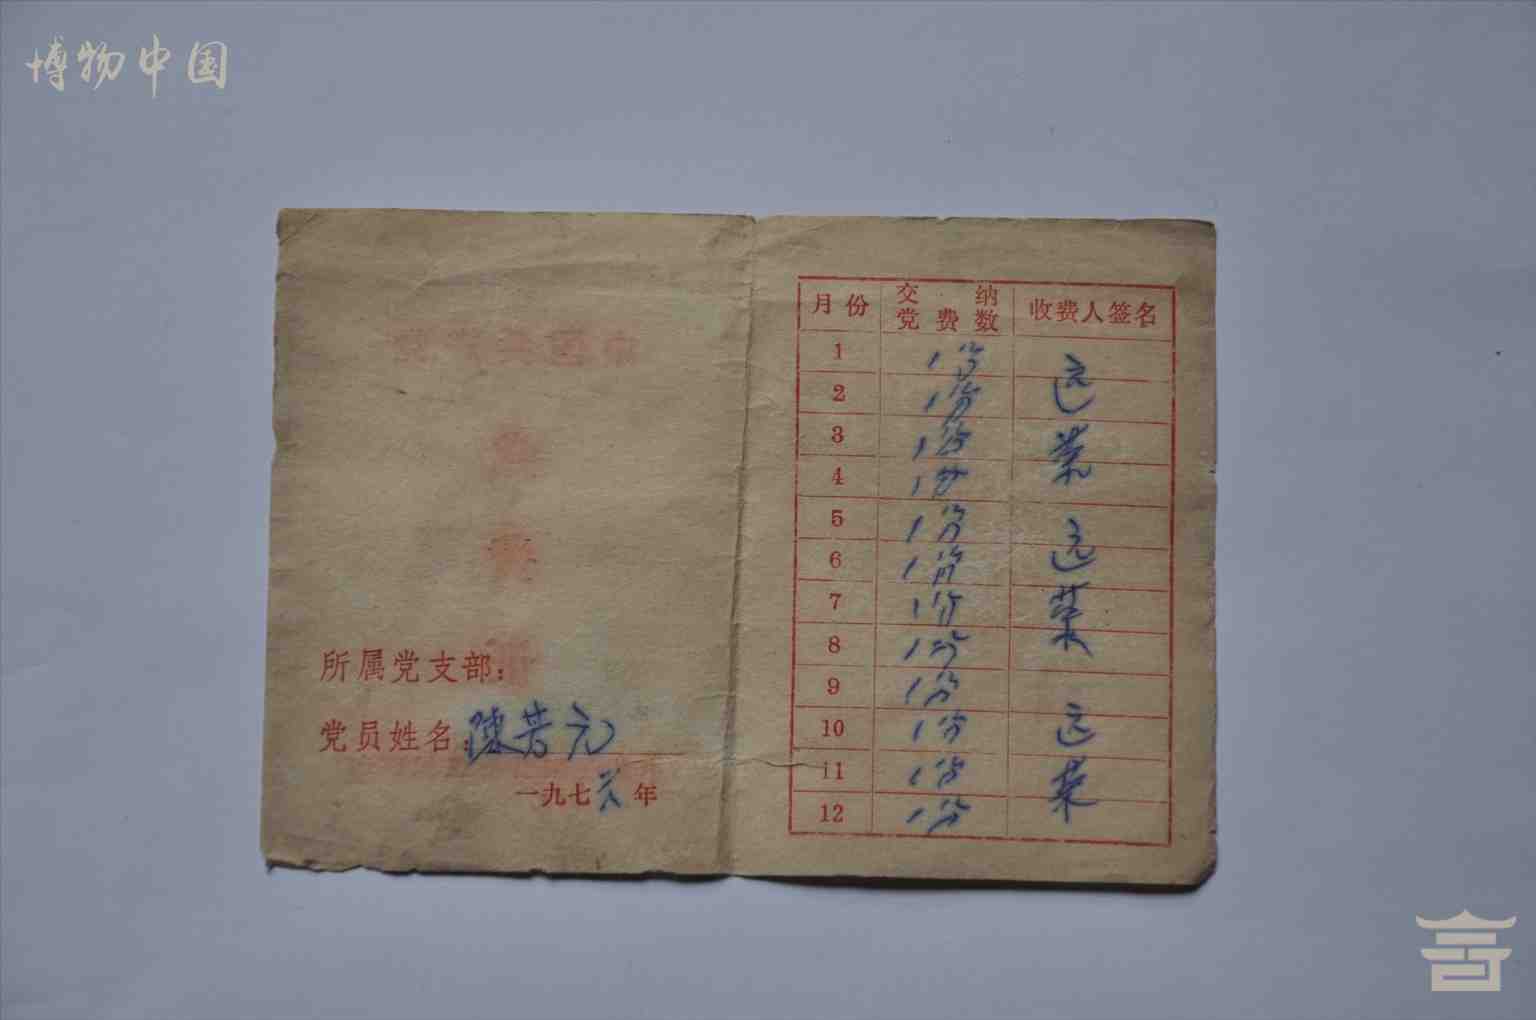 博物中国
所属党支部：
党员姓名：陳芳元
一九七六年
月份 交纳党费数 收费人签名
1 1分
2 1分 远
3 1分
4 1分 荣
5 1分
6 1分 远
7 1分 荣
8 1分
9 1分
10 1分 远
11 1分
12 1分 荣